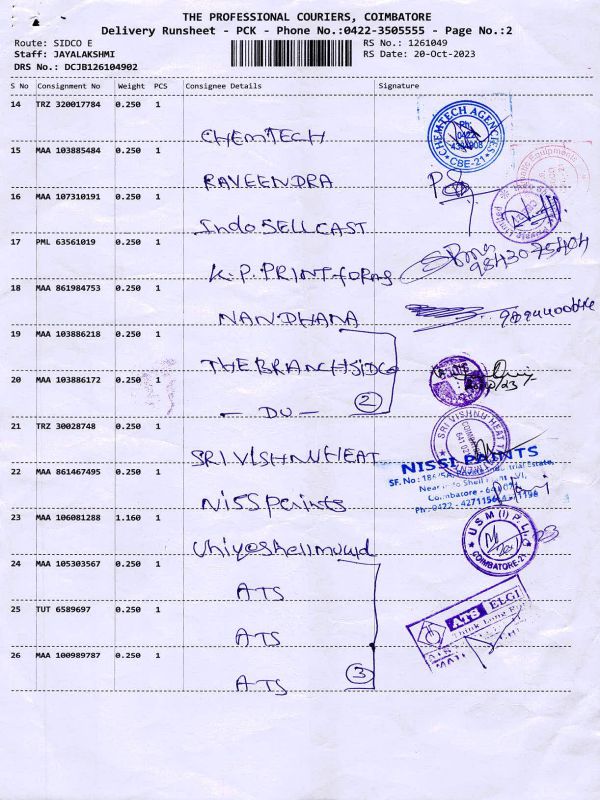 THE PROFESSIONAL COURIERS, COIMBATORE
Delivery Runsheet - PCK - Phone No.:0422-3505555 - Page No.:2
Route: SIDCO E
RS No.: 1261049
Staff: JAYALAKSHMI
RS Date: 20-Oct-2023
DRS No.: DCJB126104902
S No Consignment No Weight PCS Consignee Details Signature
14 TRZ 320017784 0.250 1
CHEMTECH
CHEMTECH AGENCIES
Ph: 0422
CBE-21
15 MAA 103885484 0.250 1
RAVEENDRA
16 MAA 107310191 0.250 1
Indo SELL CAST
17 PML 63561019 0.250 1
K.P. PRINT forms
9843075404
18 MAA 861984753 0.250 1
NANDHANA
19 MAA 103886218 0.250 1
THE BRANCH SIDCO
20 MAA 103886172 0.250 1
- DO - 2
21 TRZ 30028748 0.250 1
SRI VISHNU HEAT
SRI VISHNU HEAT
22 MAA 861467495 0.250 1
Niss Paints
NISSI PAINTS
Coimbatore
23 MAA 106081288 1.160 1
USM (I) P. Ltd
COIMBATORE-21
24 MAA 105303567 0.250 1
ATS
25 TUT 6589697 0.250 1
ATS
ATS ELGI
26 MAA 100989787 0.250 1
ATS 3